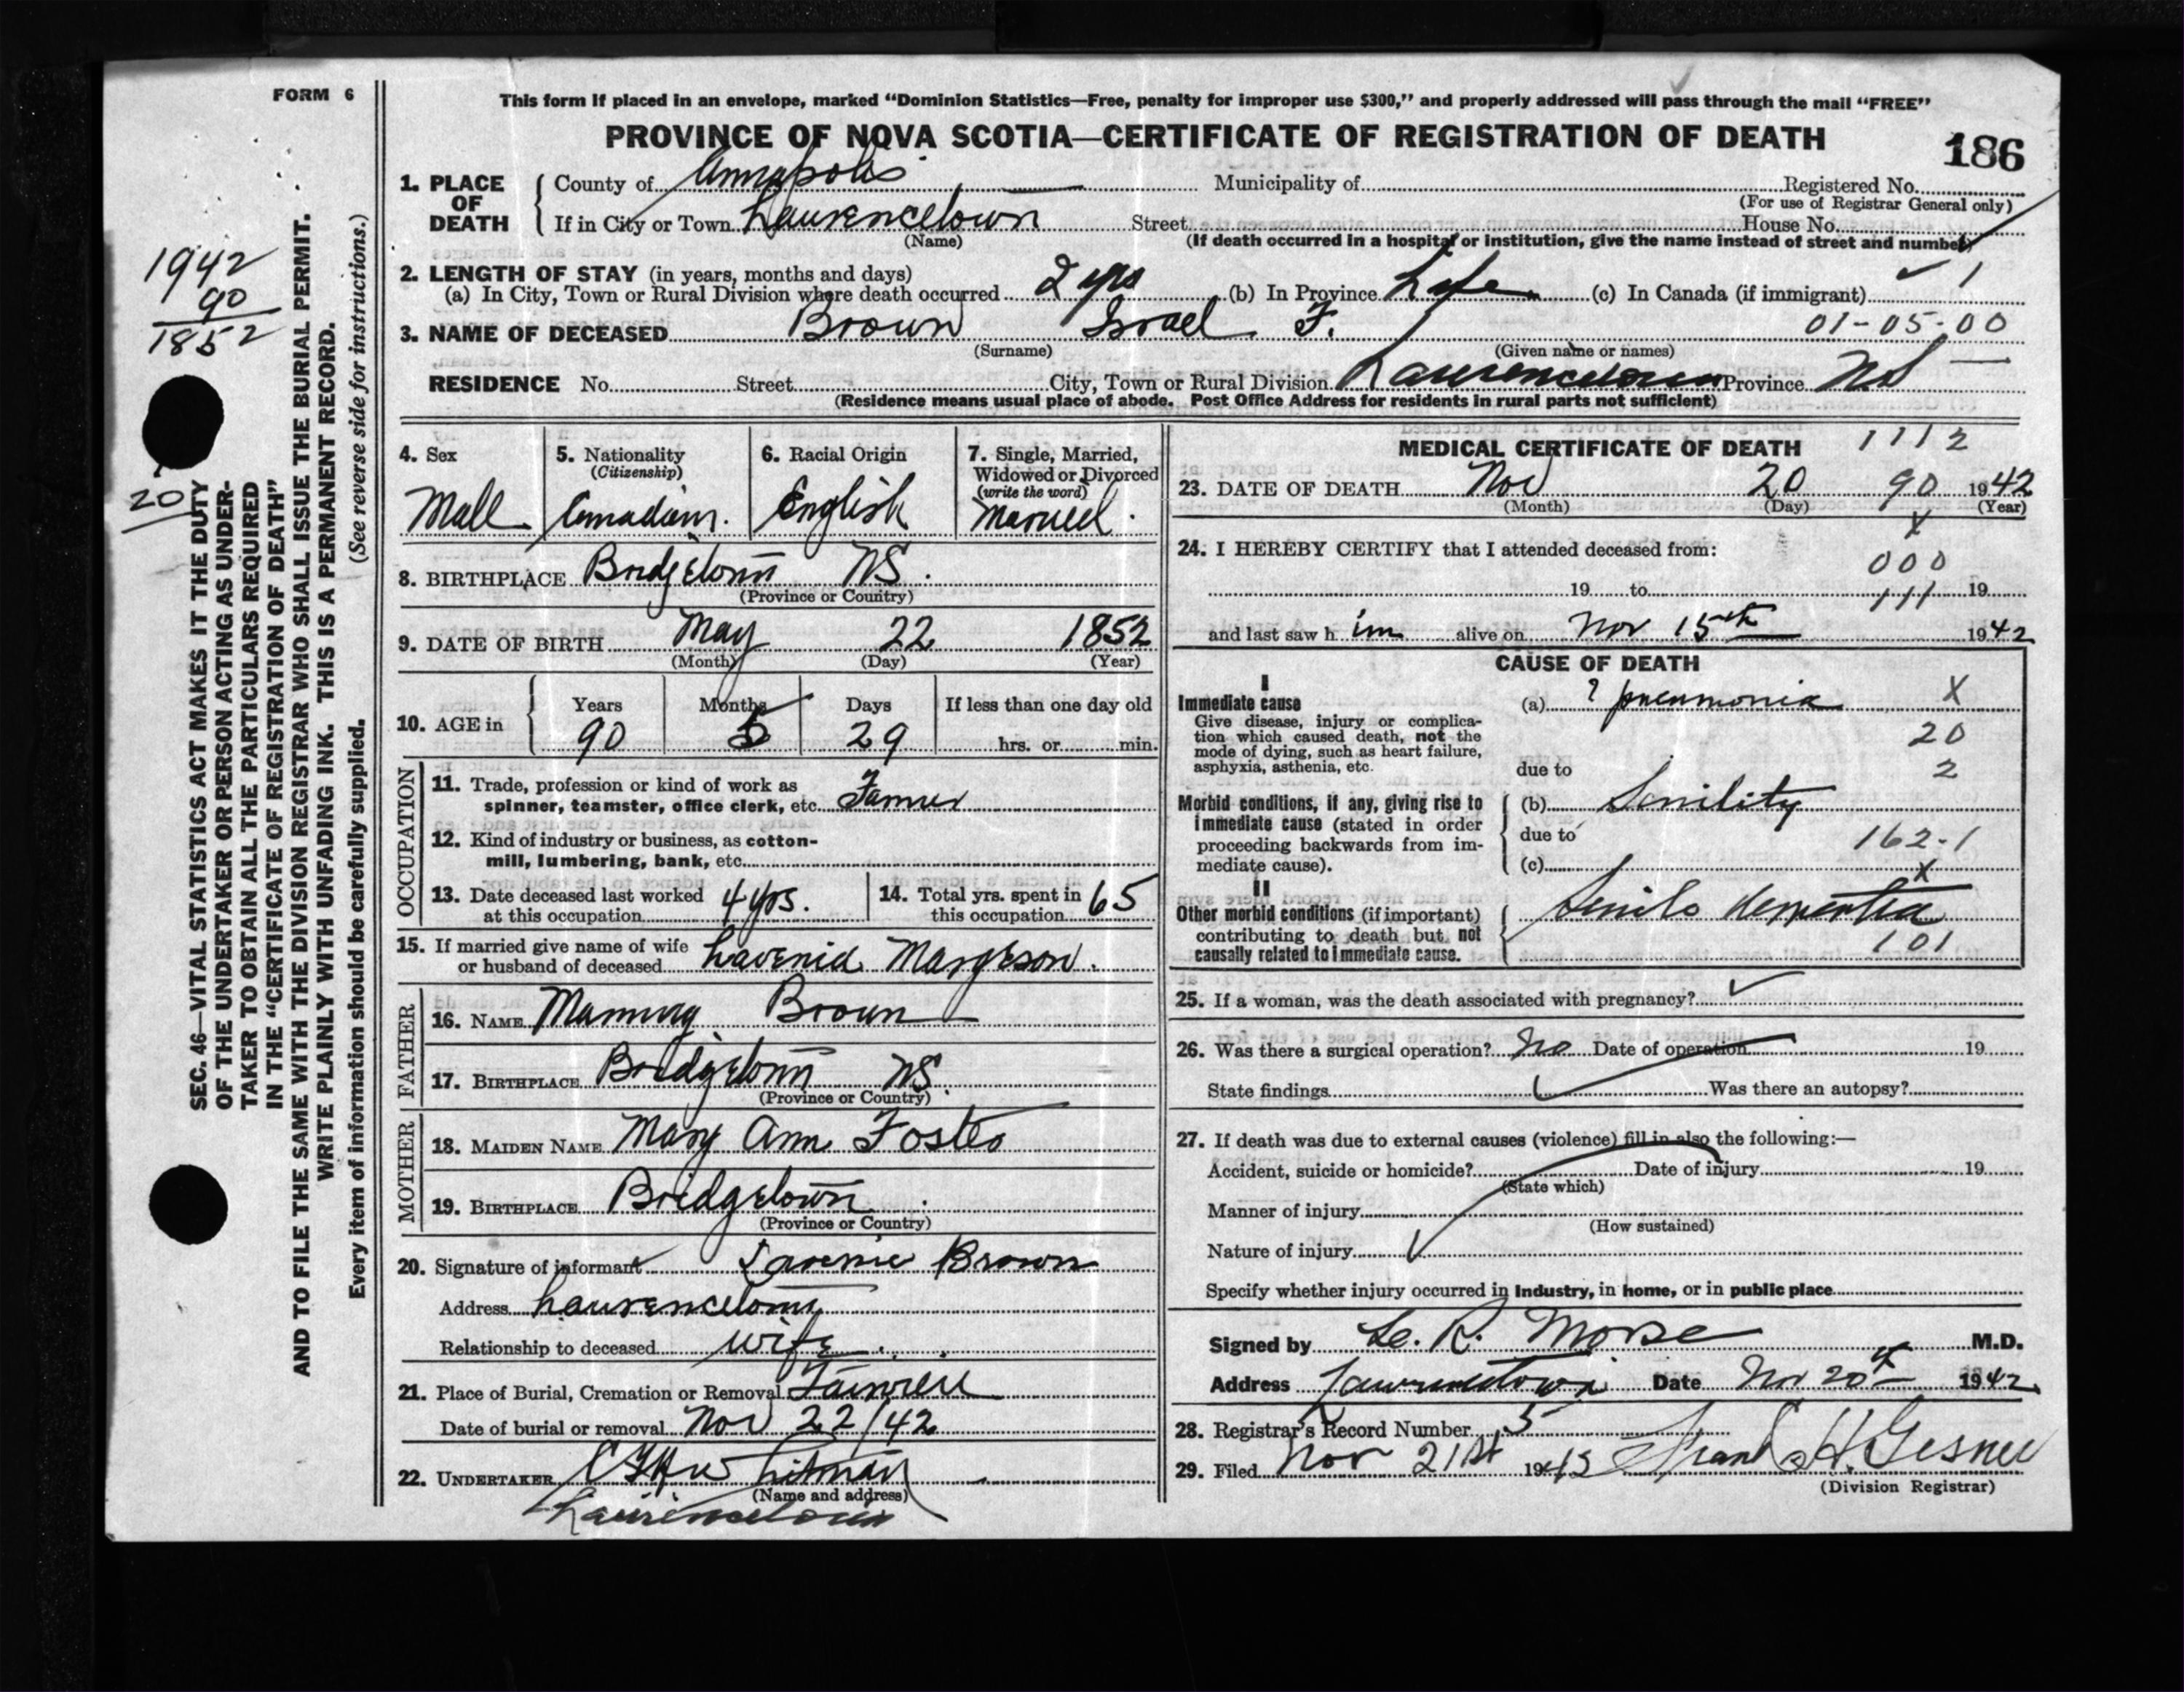 FORM 6
This form if placed in an envelope, marked “Dominion Statistics—Free, penalty for improper use $300,” and properly addressed will pass through the mail “FREE”
PROVINCE OF NOVA SCOTIA—CERTIFICATE OF REGISTRATION OF DEATH
186
1. PLACE OF DEATH
County of Annapolis Municipality of Registered No.
(For use of Registrar General only)
If in City or Town Laurencetown Street House No.
(Name) (If death occurred in a hospital or institution, give the name instead of street and number)
2. LENGTH OF STAY (in years, months and days)
(a) In City, Town or Rural Division where death occurred 2 yrs (b) In Province Life (c) In Canada (if immigrant) 1
01-05-00
3. NAME OF DECEASED Brown Israel F.
(Surname) (Given name or names)
RESIDENCE No. Street City, Town or Rural Division Laurencetown Province NS
(Residence means usual place of abode. Post Office Address for residents in rural parts not sufficient)
1942
90
1852
20
SEC. 46—VITAL STATISTICS ACT MAKES IT THE DUTY
OF THE UNDERTAKER OR PERSON ACTING AS UNDER-
TAKER TO OBTAIN ALL THE PARTICULARS REQUIRED
IN THE “CERTIFICATE OF REGISTRATION OF DEATH”
AND TO FILE THE SAME WITH THE DIVISION REGISTRAR WHO SHALL ISSUE THE BURIAL PERMIT.
WRITE PLAINLY WITH UNFADING INK. THIS IS A PERMANENT RECORD.
Every item of information should be carefully supplied. (See reverse side for instructions.)
4. Sex
Male
5. Nationality
(Citizenship)
Canadian.
6. Racial Origin
English
7. Single, Married,
Widowed or Divorced
(write the word)
Married.
8. BIRTHPLACE Bridgetown NS.
(Province or Country)
9. DATE OF BIRTH May 22 1852
(Month) (Day) (Year)
10. AGE in
Years Months Days If less than one day old
90 5 29 hrs. or min.
OCCUPATION
11. Trade, profession or kind of work as
spinner, teamster, office clerk, etc. Farmer
12. Kind of industry or business, as cotton-
mill, lumbering, bank, etc.
13. Date deceased last worked
at this occupation 4 yrs.
14. Total yrs. spent in
this occupation 65
15. If married give name of wife
or husband of deceased Lavenia Margeson.
FATHER
16. NAME Manning Brown
17. BIRTHPLACE Bridgetown NS.
(Province or Country)
MOTHER
18. MAIDEN NAME Mary Ann Foster
19. BIRTHPLACE Bridgetown
(Province or Country)
20. Signature of informant Lavenie Brown
Address Laurencetown
Relationship to deceased wife
21. Place of Burial, Cremation or Removal
Date of burial or removal Nov 22/42
22. UNDERTAKER Whitman
(Name and address)
Laurencetown
MEDICAL CERTIFICATE OF DEATH 1112
23. DATE OF DEATH Nov 20 90 1942
(Month) (Day) (Year)
X
24. I HEREBY CERTIFY that I attended deceased from:
000
19 to 19
111
and last saw h im alive on Nov 15th 1942
CAUSE OF DEATH
I
Immediate cause
Give disease, injury or complica-
tion which caused death, not the
mode of dying, such as heart failure,
asphyxia, asthenia, etc.
(a) ? pneumonia X
20
due to 2
Morbid conditions, if any, giving rise to
immediate cause (stated in order
proceeding backwards from im-
mediate cause).
(b) Senility
due to 162-1
(c) X
II
Other morbid conditions (if important)
contributing to death but not
causally related to immediate cause.
Senile dementia
101
25. If a woman, was the death associated with pregnancy?
26. Was there a surgical operation? No Date of operation 19
State findings Was there an autopsy?
27. If death was due to external causes (violence) fill in also the following:—
Accident, suicide or homicide? Date of injury 19
(State which)
Manner of injury
(How sustained)
Nature of injury
Specify whether injury occurred in Industry, in home, or in public place
Signed by L. R. Morse M.D.
Address Lawrencetown Date Nov 20th 1942
28. Registrar's Record Number 5
29. Filed Nov 21st 19 Frank H. Gesner
(Division Registrar)